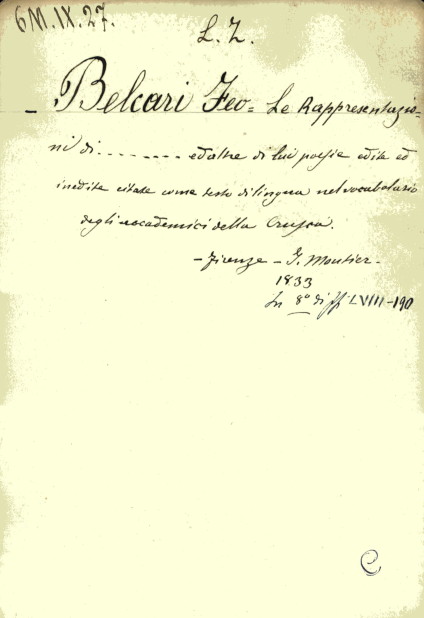 6M.IX.27.
L. Z.
- Belcari Feo = Le Rappresentazio=
ni di ........ ed altre di lui poesie edite ed
inedite citate come testo di lingua nel vocabolario
degli accademici della Crusca.
- Firenze - I. Moutier -
1833
In 8° di ff LVIII-190
C